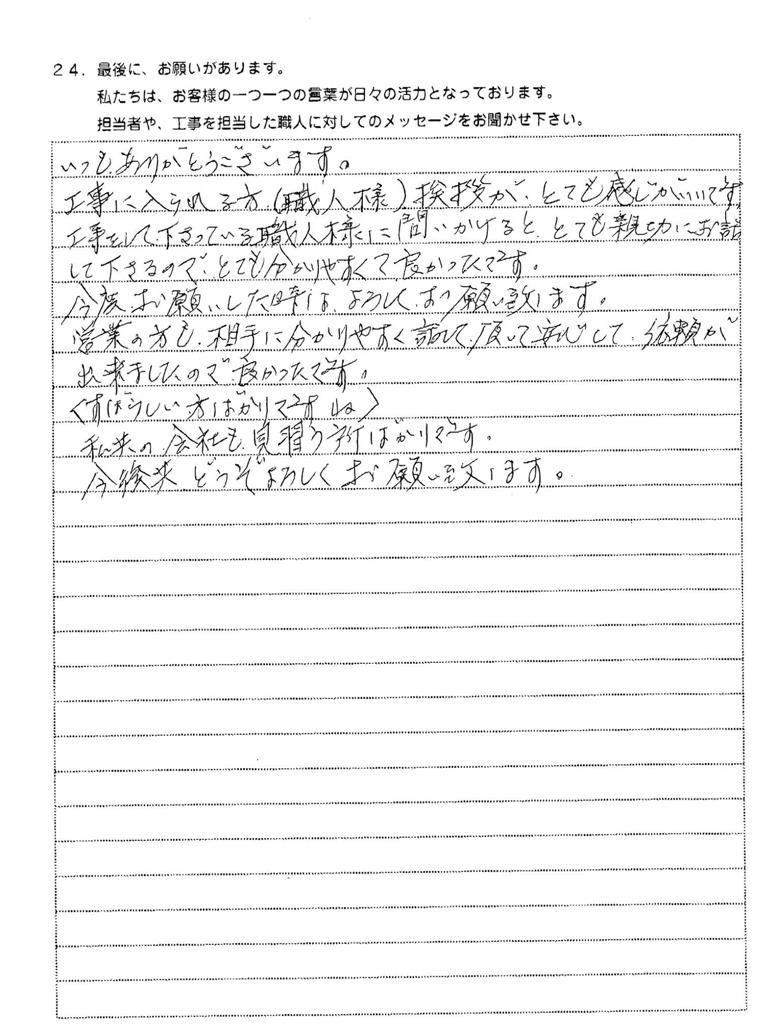 24．最後に、お願いがあります。
私たちは、お客様の一つ一つの言葉が日々の活力となっております。
担当者や、工事を担当した職人に対してのメッセージをお聞かせ下さい。
いつもありがとうございます。
工事に入られる方（職人様）挨拶が、とても感じがいいです
工事をして下さっている職人様に問いかけると、とても親切にお話
して下さるので、とても分かりやすくて良かったです。
今度お願いした時は、よろしくお願い致します。
営業の方も、相手に分かりやすく話して頂いて安心して、依頼が
出来ましたので、良かったです。
（すばらしい方ばかりですね）
私共の会社も、見習う所ばかりです。
今後共、どうぞよろしくお願い致します。